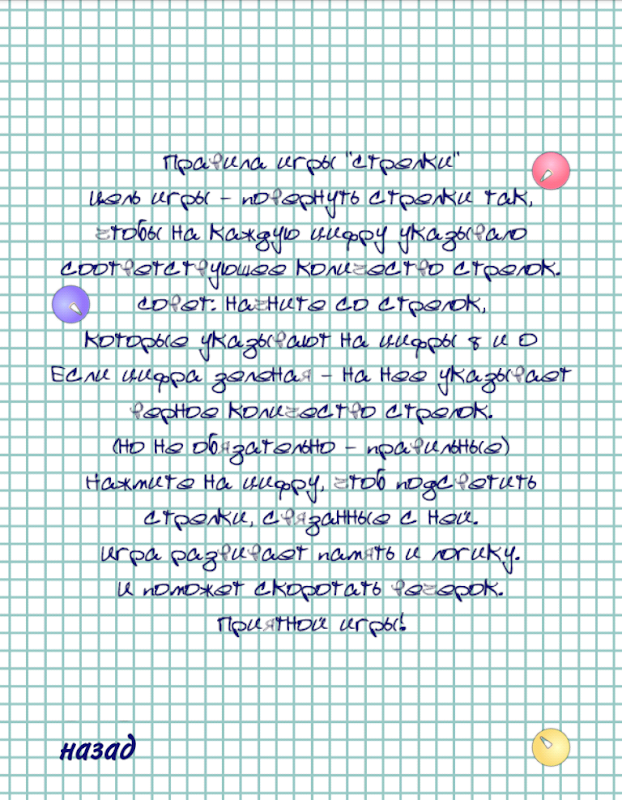 Правила игры "стрелки"
Цель игры - повернуть стрелки так,
чтобы на каждую цифру указывало
соответствующее количество стрелок.
Совет: начните со стрелок,
которые указывают на цифры 8 и 0
Если цифра зеленая - на нее указывает
верное количество стрелок.
(но не обязательно - правильные)
Нажмите на цифру, чтоб подсветить
стрелки, связанные с ней.
Игра развивает память и логику.
И поможет скоротать вечерок.
Приятной игры!
назад